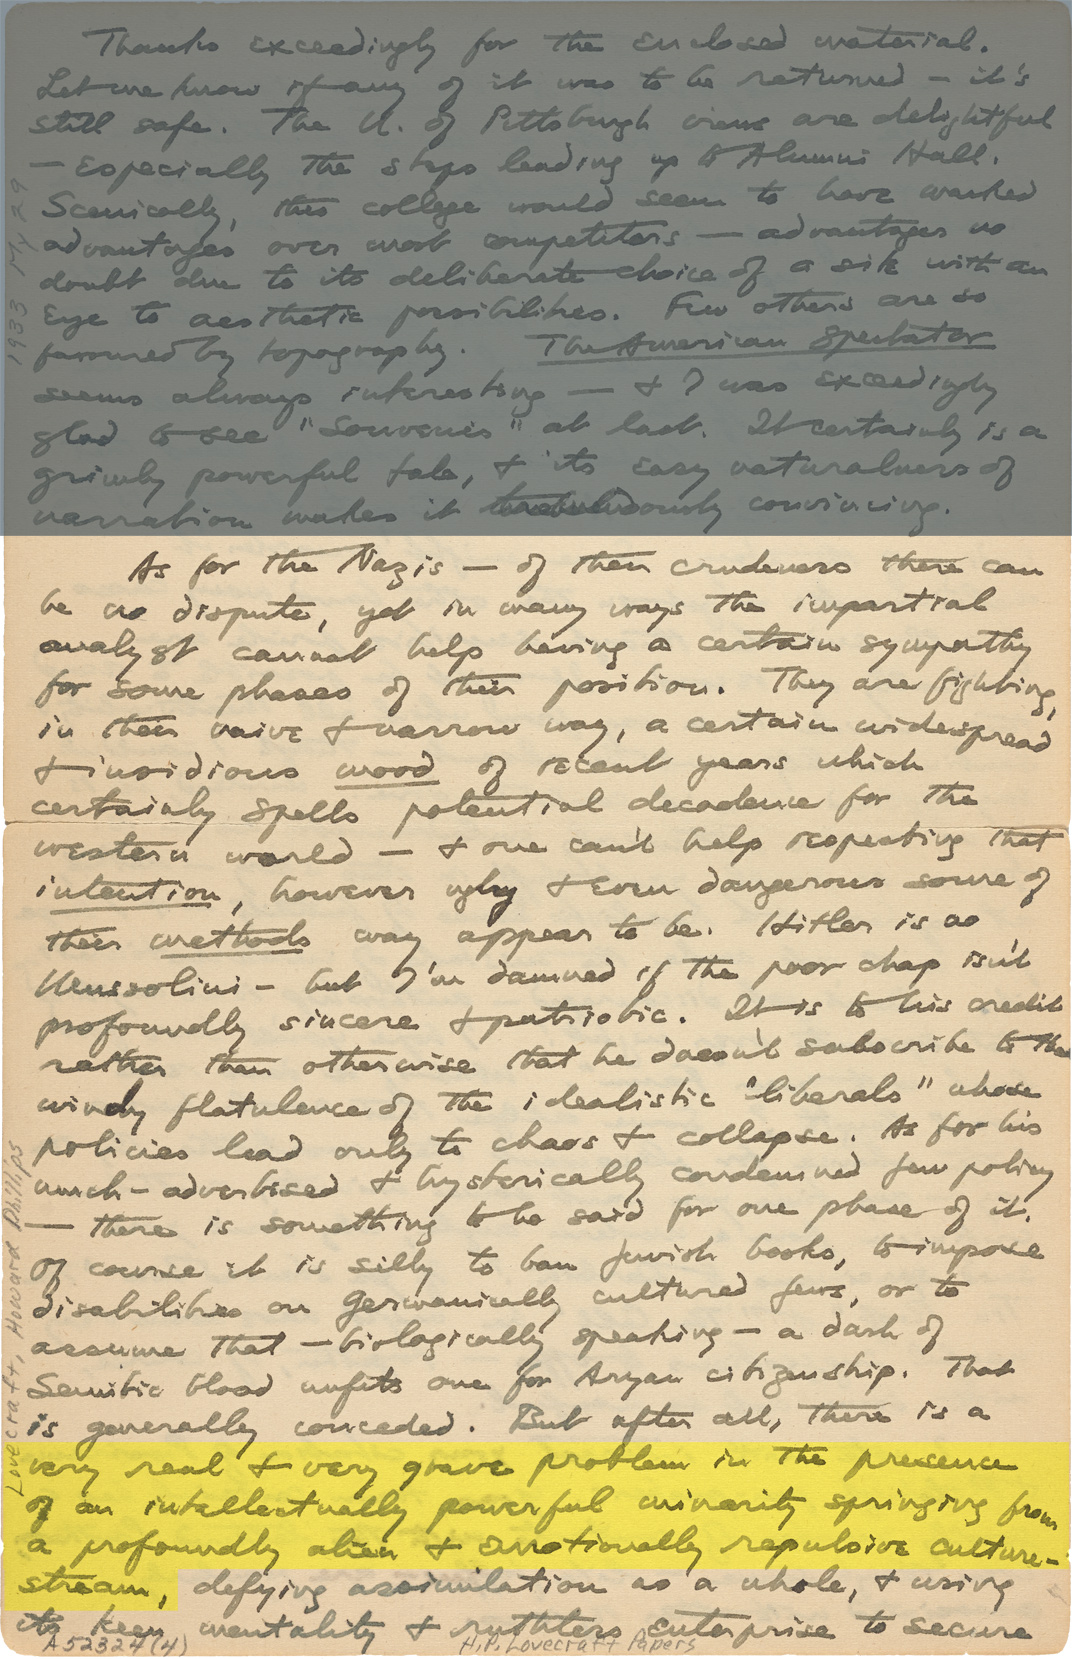 Thanks exceedingly for the enclosed material.
Let me know if any of it was to be returned — it's
still safe. The U. of Pittsburgh views are delightful
— especially the steps leading up to Alumni Hall.
Scenically, this college would seem to have marked
advantages over most competitors — advantages no
doubt due to its deliberate choice of a site with an
eye to aesthetic possibilities. Few others are so
favoured by topography. The American Spectator
seems always interesting — & I was exceedingly
glad to see "Souvenir" at last. It certainly is a
grimly powerful tale, & its easy naturalness of
narration makes it convincing.
As for the Nazis — of their crudeness there can
be no dispute, yet in many ways the impartial
analyst cannot help having a certain sympathy
for some phases of their position. They are fighting,
in their naive & narrow way, a certain widespread
& insidious mood of recent years which
certainly spells potential decadence for the
western world — & one can't help respecting that
intention, however ugly & even dangerous some of
their methods may appear to be. Hitler is no
Mussolini — but I'm damned if the poor chap isn't
profoundly sincere & patriotic. It is to his credit
rather than otherwise that he doesn't subscribe to the
windy flatulence of the idealistic "liberals" whose
policies lead only to chaos & collapse. As for his
much-advertised & hysterically condemned Jew policy
— there is something to be said for one phase of it.
Of course it is silly to ban Jewish books, to impose
disabilities on Germanically cultured Jews, or to
assume that — biologically speaking — a dash of
Semitic blood unfits one for Aryan citizenship. That
is generally conceded. But after all, there is a
very real & very grave problem in the presence
of an intellectually powerful minority springing from
a profoundly alien & emotionally repulsive culture-
stream, defying assimilation as a whole, & using
its keen mentality & ruthless enterprise to secure
A52324(4) H.P. Lovecraft Papers
1933 My 29
Lovecraft, Howard Phillips